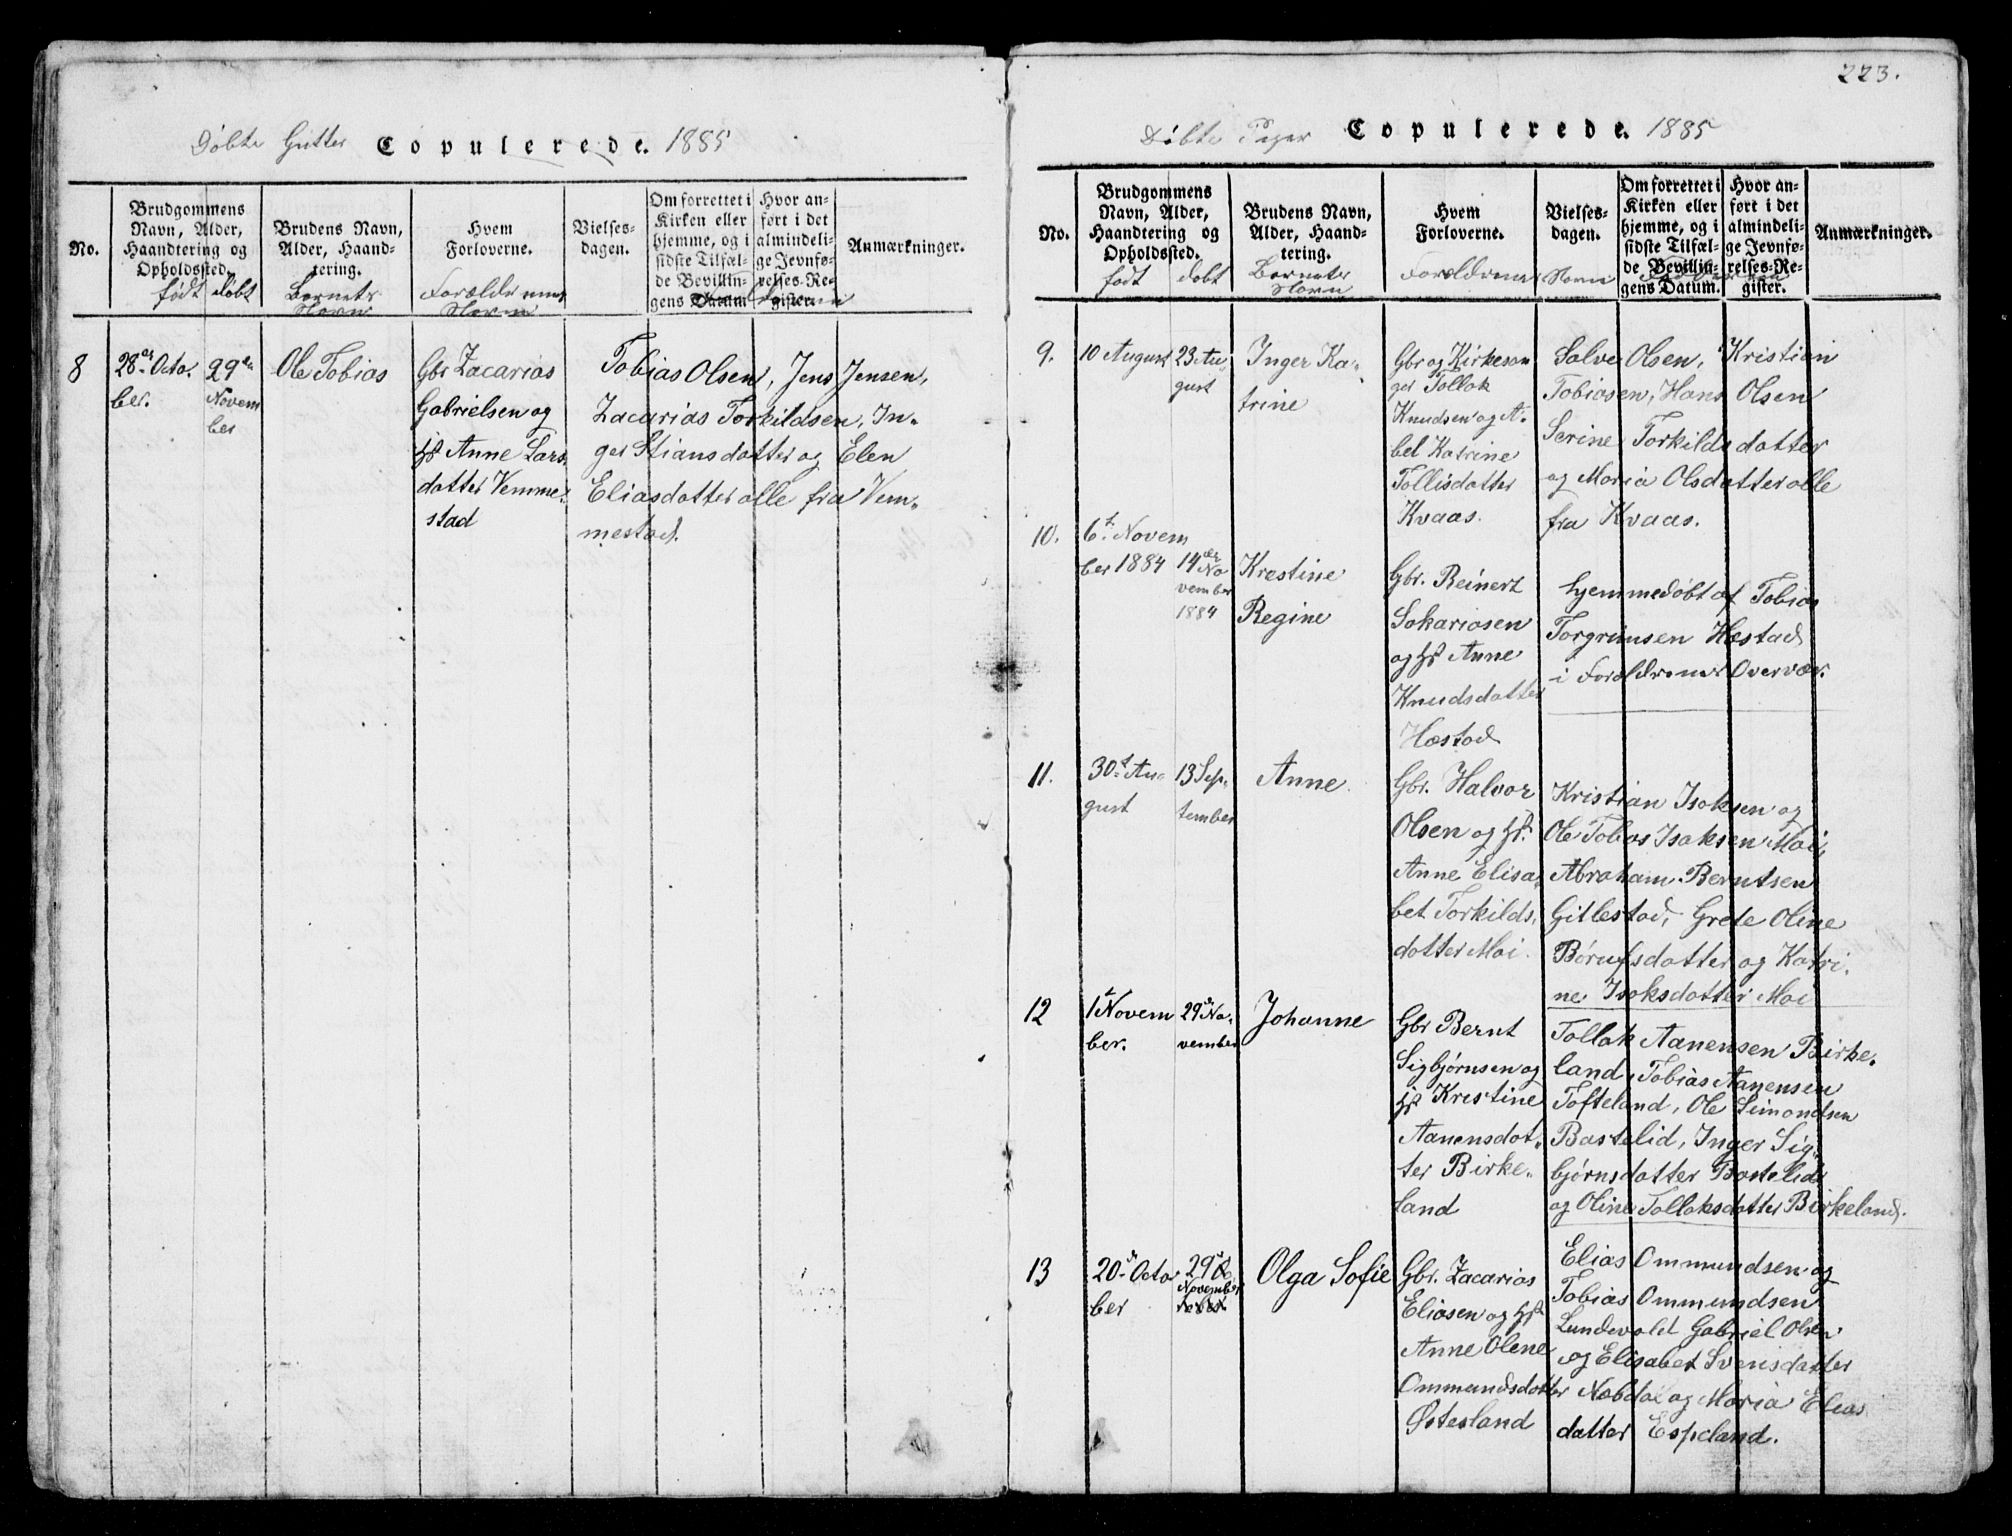 Døbte Gutter Copulerede. 1885
No.
Brudgommens
Navn, Alder,
Haandtering og
Opholdssted.
født døbt
Brudens Navn,
Alder, Haand-
tering.
Barnets
Navn
Hvem
Forloverne.
Forældrenes
Navn
Vielses-
dagen.
Om forrettet i
Kirken eller
hjemme, og i
sidste Tilfæl-
de Bevillin-
gens Datum.
Hvor an-
ført i det
almindeli-
ge Jevnfø-
relses-Re-
gister.
Anmærkninger.
8
28de Octo.
ber.
29de
Novem
ber
Ole Tobias
Gbr Zacarias
Gabrielsen og
Hst Anne Lars
datter Vemme-
stad
Tobias Olsen, Jens Jensen,
Zacarias Torkildsen, In-
ger Stiansdatter og Elen
Eliasdatter alle fra Vem-
mestad.
223.
Døbte Piger Copulerede. 1885
No.
Brudgommens
Navn, Alder,
Haandtering og
Opholdssted.
født døbt
Brudens Navn,
Alder, Haand-
tering.
Barnets
Navn
Hvem
Forloverne.
Forældrenes
Vielses-
dagen.
Navn
Om forrettet i
Kirken eller
hjemme, og i
sidste Tilfæl-
de Bevillin-
gens Datum.
Hvor an-
ført i det
almindeli-
ge Jevnfø-
relses-Re-
gister.
Anmærkninger.
9.
10 August
23 Au-
gust
Inger Ka-
trine
Gbr og Kirkesan
ger Tollak
Knudsen og A-
bel Katrine
Tollisdatter
Kvaas.
Salve Olsen, Kristian
Tobiasen, Hans Olsen
Serine Torkildsdatter
og Maria Olsdatter alle
fra Kvaas.
10.
6te Novem
ber 1884
14de No
vember
1884
Krestine
Regine
Gbr. Reinert
Sakariasen
og Hst Anne
Knudsdatter
Hæstad
hjemmedøbt af Tobias
Torgrimsen Hæstad
i Forældrenes Overvær.
11.
30te Au-
gust
13 Sep-
tember
Anne
Gbr. Halvor
Olsen og Hst.
Anne Elisa-
bet Torkilds-
datter Moi.
Kristian Isaksen og
Ole Tobias Isaksen Moi,
Abraham Berntsen
Gitlestad, Grete Oline
Børufsdatter og Katri-
ne Isaksdatter Moi
12
1te Novem
ber.
29de No-
vember
Johanne
Gbr Bernt
Sigbjørnsen og
Hst Krestine
Aanensdat-
ter Birke-
land
Tollak Aanensen Birke-
land, Tobias Aanensen
Tofteland, Ole Simondsen
Bastelid, Inger Sig-
bjørnsdatter Bastelid
og Oline Tollaksdatter Birkeland.
13
20de Octo
ber
29de
November
Olga Sofie
Gbr. Zacarias
Eliasen og Hst
Anne Olene
Ommundsdatter
Østesland
Elias Ommundsen og
Tobias Ommundsen
Lundevold Gabriel Olsen
og Elisabet Svensdatter
Nabdal og Maria Elias
datter Espeland.